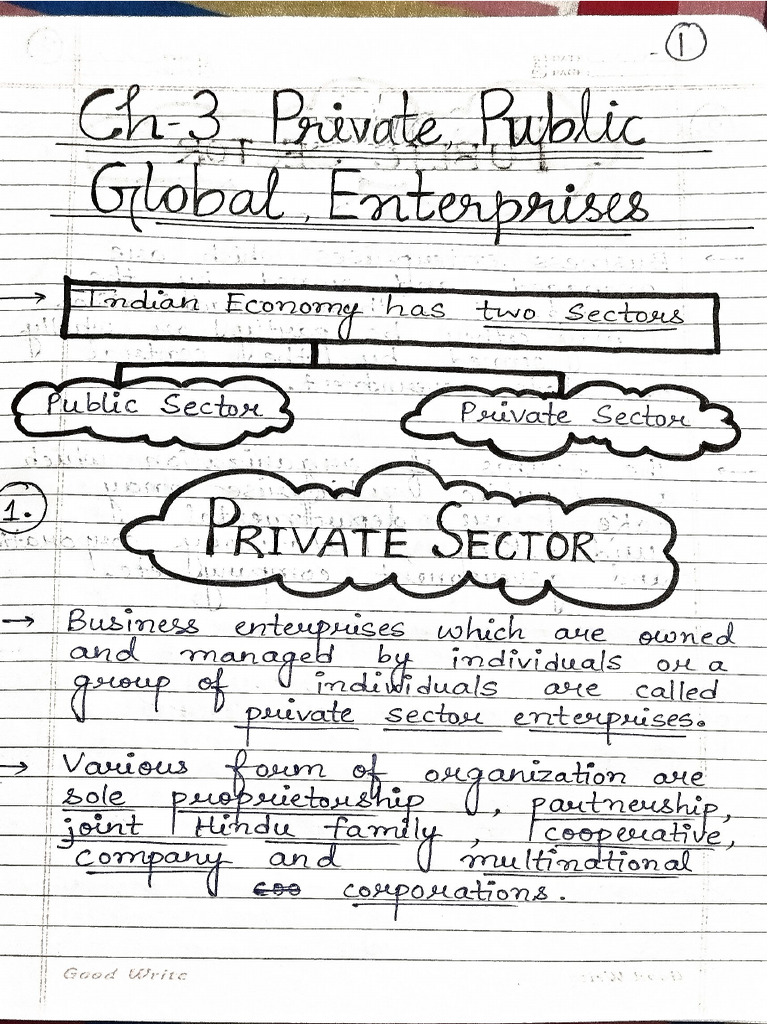 1
Ch-3 Private, Public
Global, Enterprises
→ Indian Economy has two Sectors
Public Sector Private Sector
1. PRIVATE SECTOR
→ Business enterprises which are owned
and managed by individuals or a
group of individuals are called
private sector enterprises.
→ Various form of organization are
sole proprietorship, partnership,
joint Hindu family, cooperative,
company and multinational
coo corporations.
Good Write